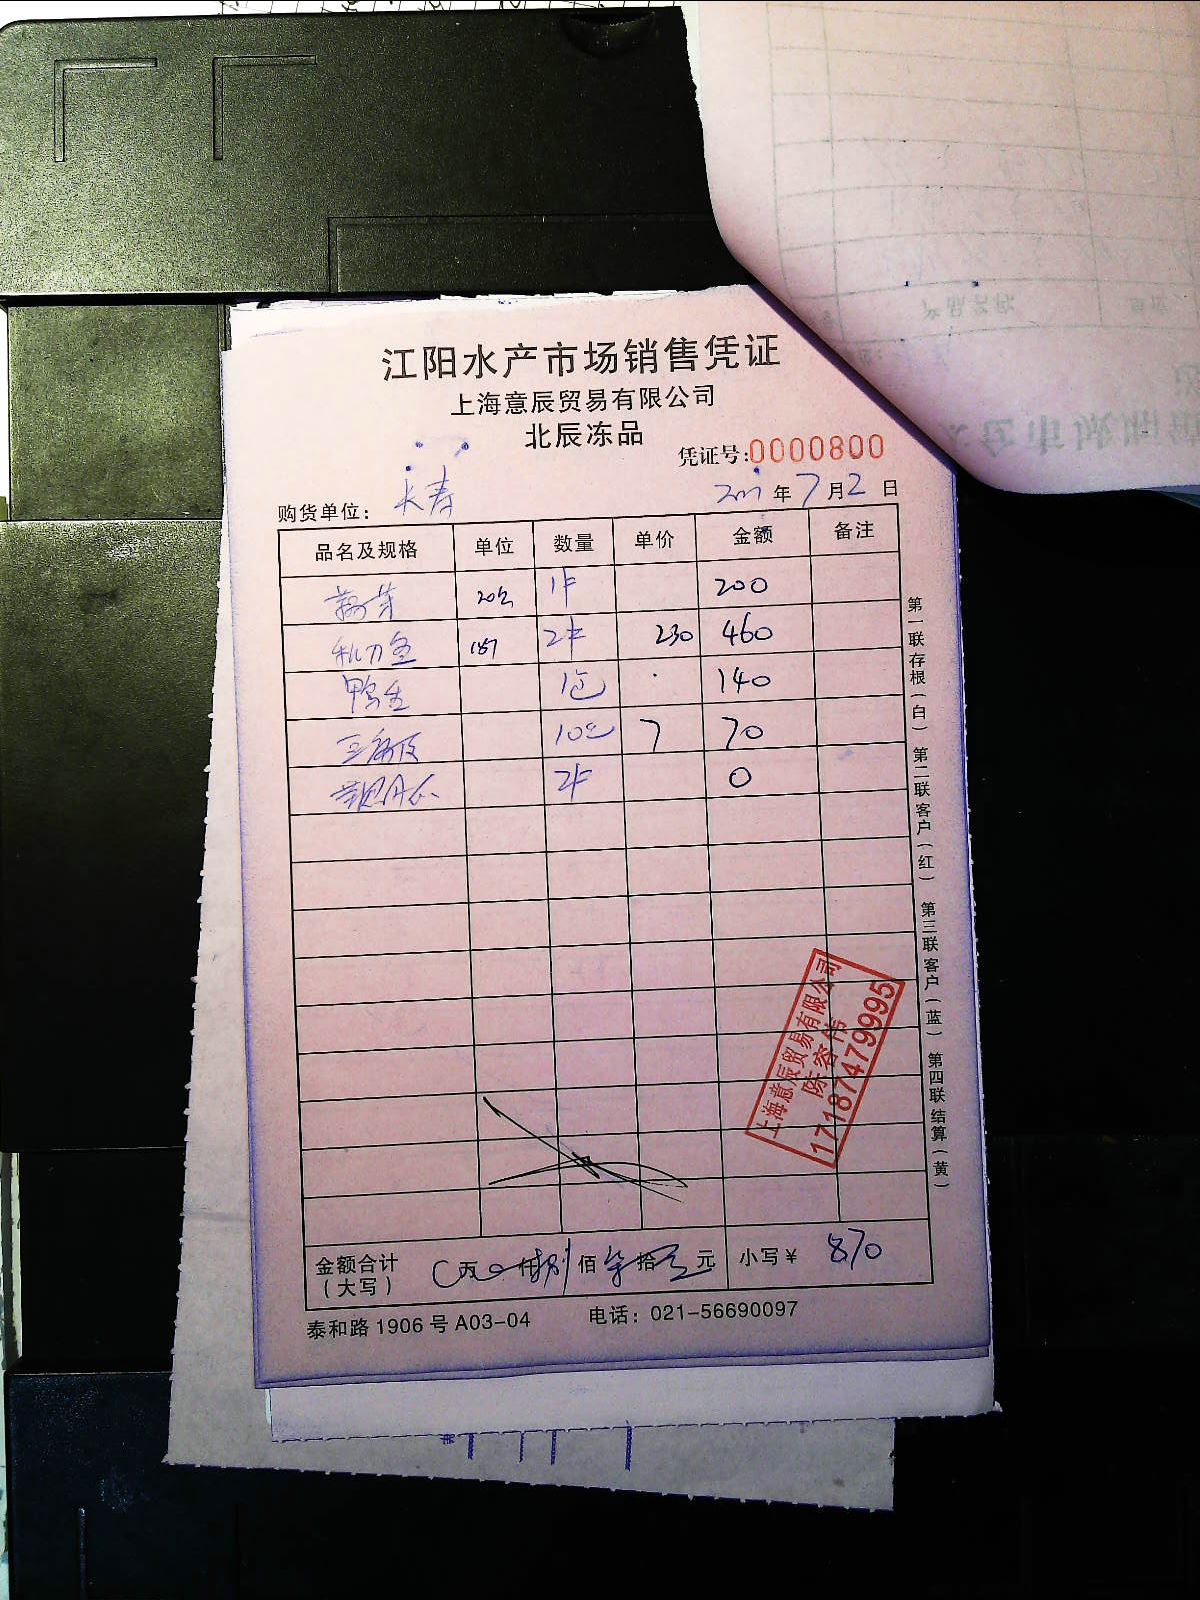 江阳水产市场销售凭证
上海意辰贸易有限公司
北辰冻品
凭证号:0000800
购货单位: 长寿
年 7 月 2 日
品名及规格 单位 数量 单价 金额 备注
20包 1件 200
秋刀鱼 187 2件 230 460
鸭 1包 140
三角 10包 7 70
2件 0
金额合计(大写) 万 仟 捌 佰 柒 拾 元 小写¥ 870
泰和路1906号A03-04 电话: 021-56690097
第一联存根(白) 第二联客户(红) 第三联客户(蓝) 第四联结算(黄)
上海意辰贸易有限公司
陈容伟
17187479995